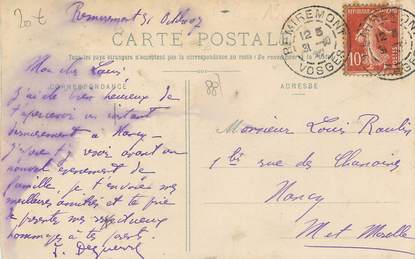 20t
Remiremont 31 Octbre 07
CARTE POSTALE
Tous les pays étrangers n'acceptent pas la correspondance au recto
CORRESPONDANCE
ADRESSE
REMIREMONT
12 5
31 -10
VOSGES
10
Mon cher Louis
J'ai été bien heureux de
t'apercevoir un instant
dernièrement à Nancy -
J'espère t'y voir avant un
nouvel évènement de
famille, je t'envoie mes
meilleures amitiés et te prie
de présenter mes respectueux
hommages à tes parents.
Monsieur Louis Raulin
1 bis rue des Chanoines
Nancy
Met Moselle